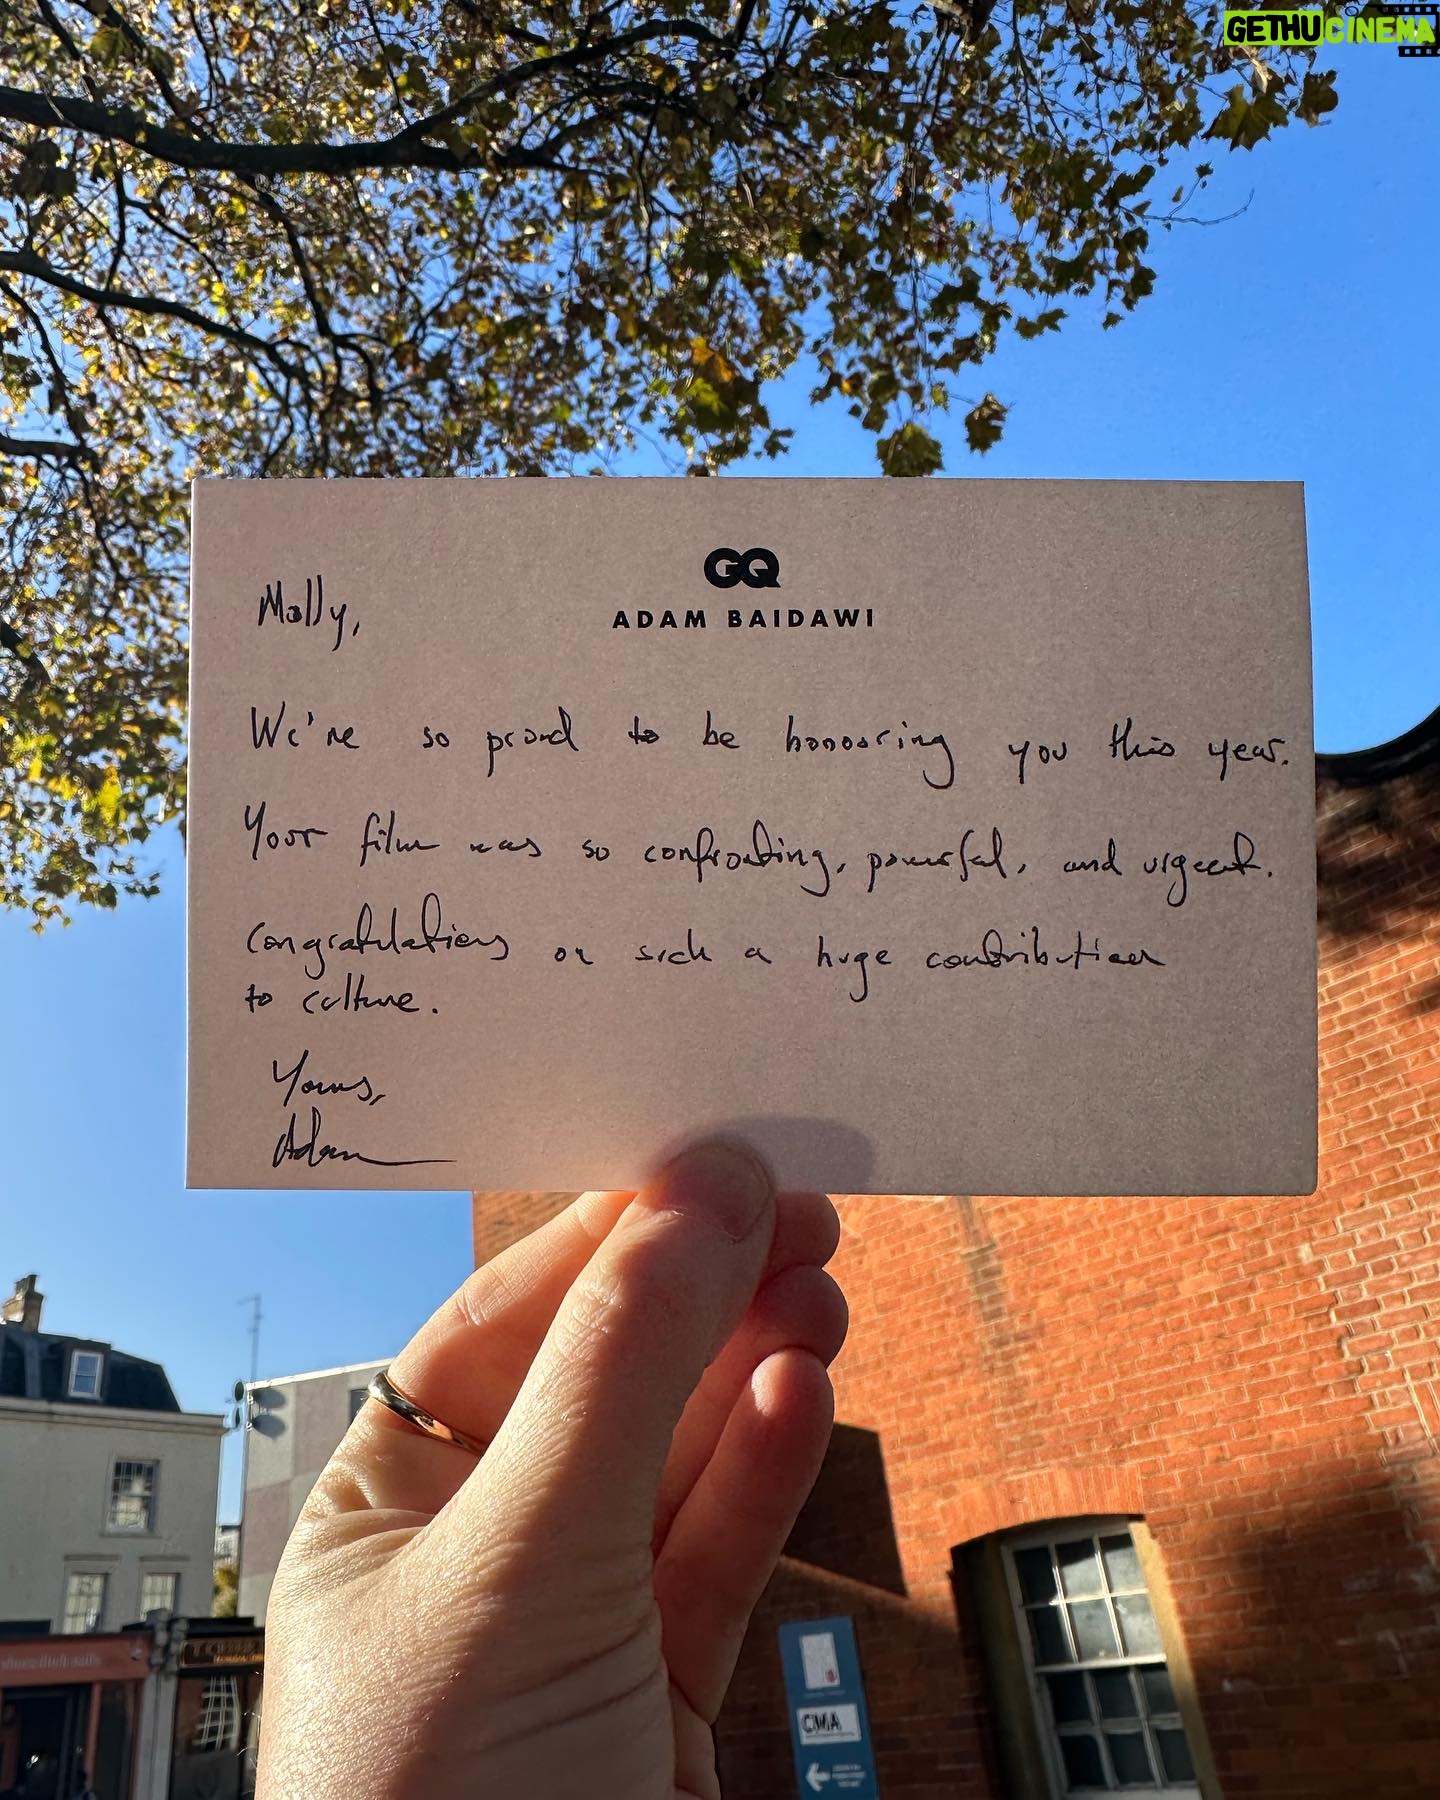 GETHUCINEMA
GQ
ADAM BAIDAWI
Molly,
We're so proud to be honouring you this year.
Your film was so confronting, powerful, and urgent.
Congratulations on such a huge contribution
to culture.
Yours,
Adam